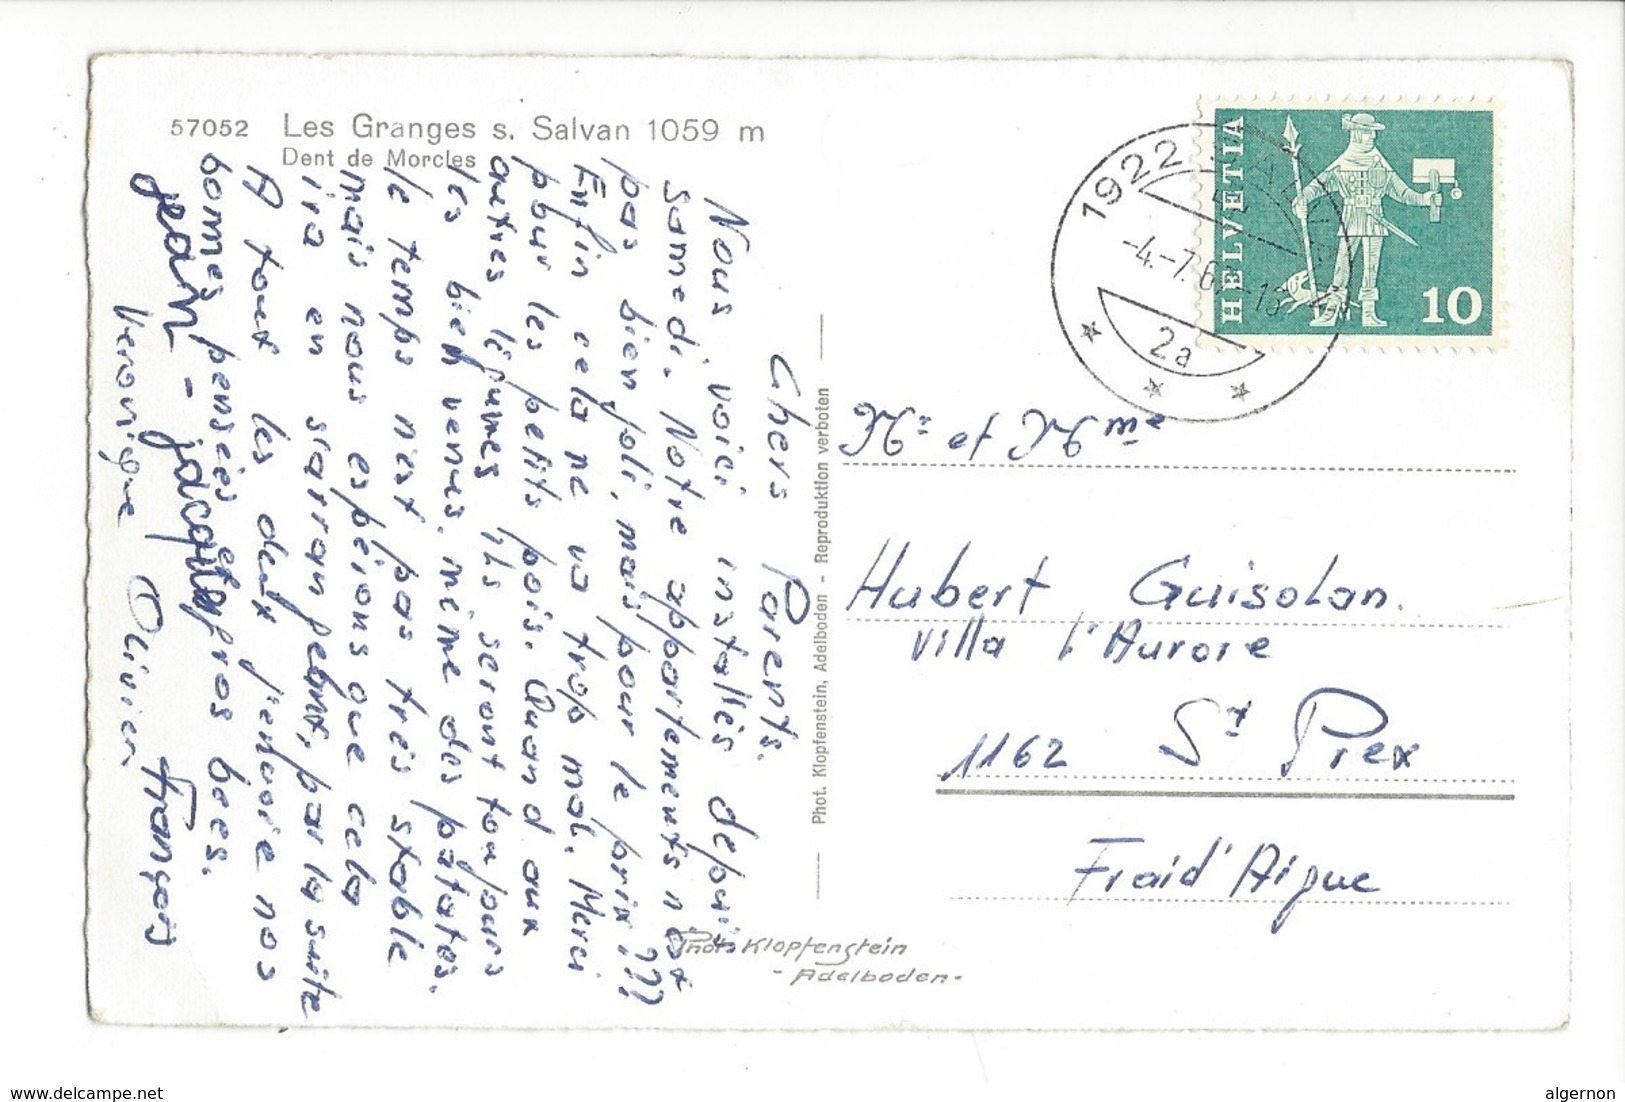 57052 Les Granges s. Salvan 1059 m
Dent de Morcles
Chers Parents.
Nous voici installés depuis
samedi. Notre appartements n'est
pas bien joli, mais pour le prix ???
Enfin cela ne va trop mal. Merci
pour les petits pois. Quand aux
autres légumes ils seront toujours
les bien venus, même des patates.
le temps n'est pas très stable
mais nous espérons que cela
ira en s'arran peant, par la suite
A tout les deux j'envoie nos
bonnes pensées et gros becs.
jean-jacques François
Veronique Olivier
Phot. Klopfenstein, Adelboden - Reproduktion verboten
Phot. Klopfenstein
- Adelboden -
HELVETIA
10
1922 SALVAN
-4.-7.6
2a
Mr et Mme
Hubert Guisolan.
Villa l'Aurore
1162 St Prex
Fraid'Aigue
www.delcampe.net
algernon